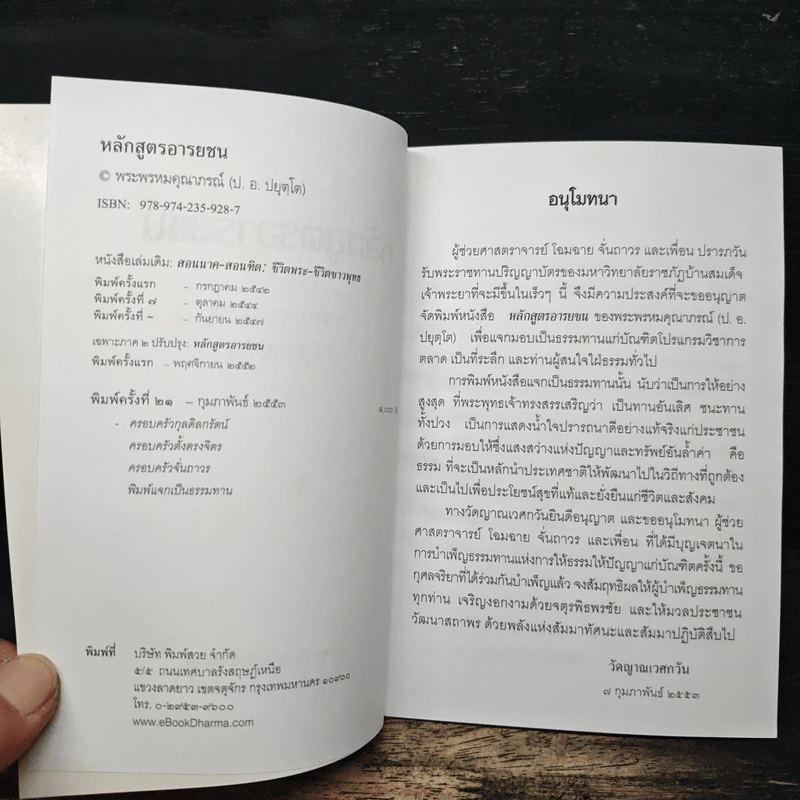 หลักสูตรอารยชน
© พระพรหมคุณาภรณ์ (ป. อ. ปยุตฺโต)
ISBN: 978-974-235-928-7
หนังสือเล่มเดิม: สอนนาค-สอนฑิต: ชีวิตพระ-ชีวิตชาวพุทธ
พิมพ์ครั้งแรก - กรกฎาคม ๒๕๔๒
พิมพ์ครั้งที่ ๗ - ตุลาคม ๒๕๔๔
พิมพ์ครั้งที่ ~ - กันยายน ๒๕๔๗
เฉพาะภาค ๒ ปรับปรุง: หลักสูตรอารยชน
พิมพ์ครั้งแรก - พฤศจิกายน ๒๕๕๒
พิมพ์ครั้งที่ ๒๑ - กุมภาพันธ์ ๒๕๕๓
- ครอบครัวกุลดิลกรัตน์
ครอบครัวตั้งตรงจิตร
ครอบครัวจั่นถาวร
พิมพ์แจกเป็นธรรมทาน
พิมพ์ที่ บริษัท พิมพ์สวย จำกัด
๕/๕ ถนนเทศบาลรังสฤษฎ์เหนือ
แขวงลาดยาว เขตจตุจักร กรุงเทพมหานคร ๑๐๙๐๐
โทร. ๐-๒๙๕๓-๙๖๐๐
www.eBookDharma.com
๑,๐๐๐
อนุโมทนา
ผู้ช่วยศาสตราจารย์ โฉมฉาย จั่นถาวร และเพื่อน ปรารภวัน
รับพระราชทานปริญญาบัตรของมหาวิทยาลัยราชภัฏบ้านสมเด็จ
เจ้าพระยาที่จะมีขึ้นในเร็วๆ นี้ จึงมีความประสงค์ที่จะขออนุญาต
จัดพิมพ์หนังสือ หลักสูตรอารยชน ของพระพรหมคุณาภรณ์ (ป. อ.
ปยุตฺโต) เพื่อแจกมอบเป็นธรรมทานแก่บัณฑิตโปรแกรมวิชาการ
ตลาด เป็นที่ระลึก และท่านผู้สนใจใฝ่ธรรมทั่วไป
การพิมพ์หนังสือแจกเป็นธรรมทานนั้น นับว่าเป็นการให้อย่าง
สูงสุด ที่พระพุทธเจ้าทรงสรรเสริญว่า เป็นทานอันเลิศ ชนะทาน
ทั้งปวง เป็นการแสดงน้ำใจปรารถนาดีอย่างแท้จริงแก่ประชาชน
ด้วยการมอบให้ซึ่งแสงสว่างแห่งปัญญาและทรัพย์อันล้ำค่า คือ
ธรรม ที่จะเป็นหลักนำประเทศชาติให้พัฒนาไปในวิถีทางที่ถูกต้อง
และเป็นไปเพื่อประโยชน์สุขที่แท้และยั่งยืนแก่ชีวิตและสังคม
ทางวัดญาณเวศกวันยินดีอนุญาต และขออนุโมทนา ผู้ช่วย
ศาสตราจารย์ โฉมฉาย จั่นถาวร และเพื่อน ที่ได้มีบุญเจตนาใน
การบำเพ็ญธรรมทานแห่งการให้ธรรมให้ปัญญาแก่บัณฑิตครั้งนี้ ขอ
กุศลจริยาที่ได้ร่วมกันบำเพ็ญแล้ว จงสัมฤทธิผลให้ผู้บำเพ็ญธรรมทาน
ทุกท่าน เจริญงอกงามด้วยจตุรพิธพรชัย และให้มวลประชาชน
วัฒนาสถาพร ด้วยพลังแห่งสัมมาทัศนะและสัมมาปฏิบัติสืบไป
วัดญาณเวศกวัน
๗ กุมภาพันธ์ ๒๕๕๓